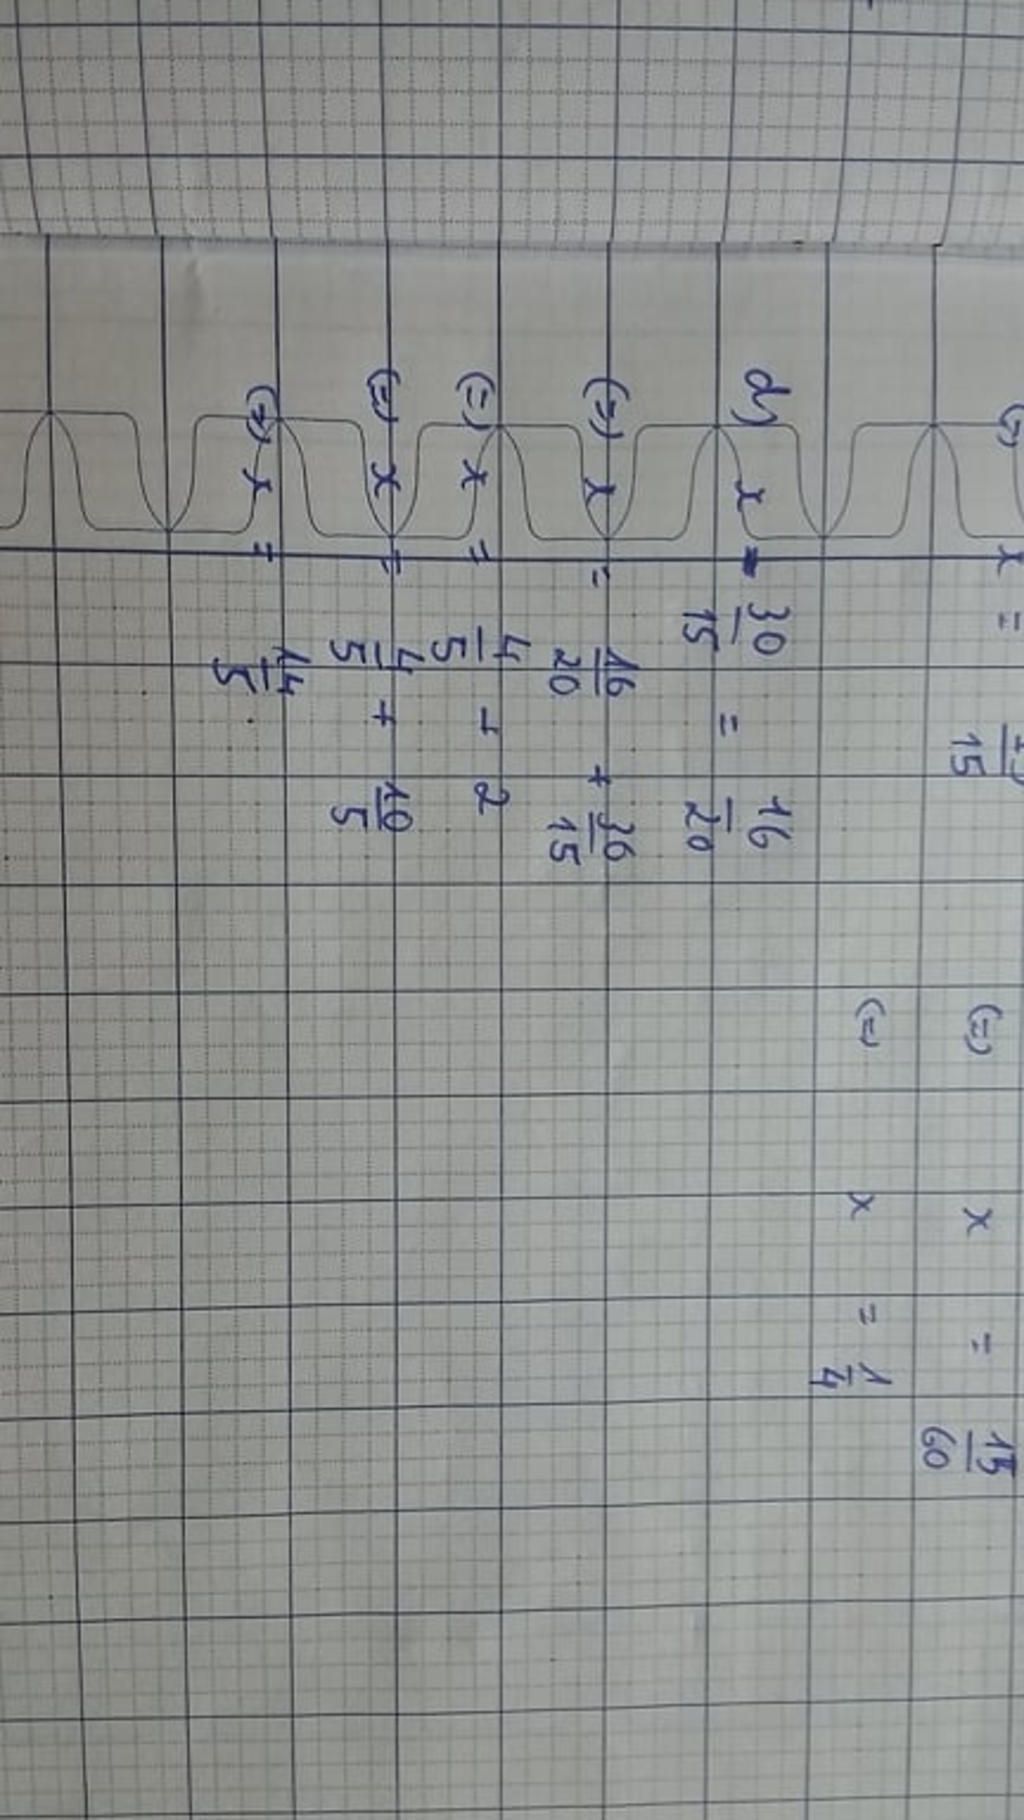 x =
15
(=) x = 15/60
(=) x = 1/4
d) x - 30/15 = 16/20
(=) x = 16/20 + 30/15
(=) x = 4/5 + 2
(=) x = 4/5 + 10/5
(=) x = 14/5